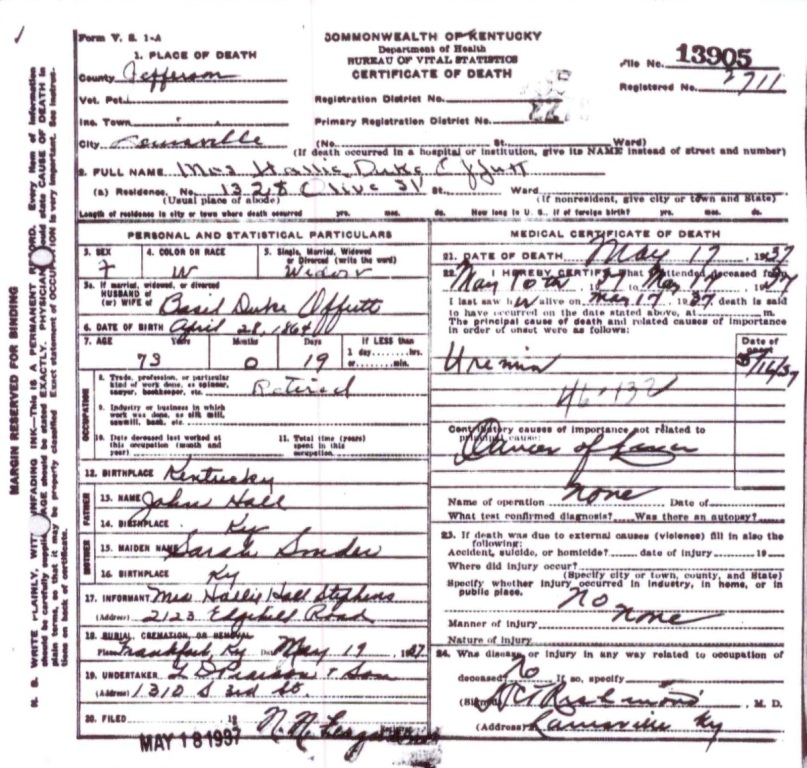 Form V. S. 1-A
COMMONWEALTH OF KENTUCKY
Department of Health
BUREAU OF VITAL STATISTICS
CERTIFICATE OF DEATH
File No. 13905
Registered No. 2711
1. PLACE OF DEATH
County Jefferson
Vot. Pct.
Inc. Town
City Louisville
Registration District No.
Primary Registration District No.
(No. St. Ward)
(If death occurred in a hospital or institution, give its NAME instead of street and number)
2. FULL NAME Mrs Hallie Duke Offutt
(a) Residence. No. 1328 Olive St St. Ward
(Usual place of abode) (If nonresident, give city or town and State)
Length of residence in city or town where death occurred yrs. mos. ds. How long in U. S., if of foreign birth? yrs. mos. ds.
PERSONAL AND STATISTICAL PARTICULARS
3. SEX 4. COLOR OR RACE 5. Single, Married, Widowed
or Divorced (write the word)
F W Widow
5a. If married, widowed, or divorced
HUSBAND of
(or) WIFE of Basil Duke Offutt
6. DATE OF BIRTH April 28, 1864
7. AGE Years Months Days If LESS than
1 day hrs.
73 0 19 or min.
OCCUPATION
8. Trade, profession, or particular
kind of work done, as spinner,
sawyer, bookkeeper, etc. Retired
9. Industry or business in which
work was done, as silk mill,
sawmill, bank, etc.
10. Date deceased last worked at
this occupation (month and
year)
11. Total time (years)
spent in this
occupation
12. BIRTHPLACE Kentucky
FATHER
13. NAME John Hall
14. BIRTHPLACE Ky
MOTHER
15. MAIDEN NAME Sarah Snider
16. BIRTHPLACE Ky
17. INFORMANT Mrs Hallie Hall Stephens
(Address) 2123 Edgehill Road
18. BURIAL, CREMATION, OR REMOVAL
Place Frankfort, Ky Date May 19, 1937
19. UNDERTAKER L D Pearson & Son
(Address) 1310 S 3rd St.
20. FILED 19
MAY 18 1937
MEDICAL CERTIFICATE OF DEATH
21. DATE OF DEATH May 17, 1937
22. I HEREBY CERTIFY, That I attended deceased from
May 10th 1937 to May 17 1937
I last saw h alive on May 17, 1937, death is said
to have occurred on the date stated above, at m.
The principal cause of death and related causes of importance
in order of onset were as follows:
Date of
onset
Uremia 5/16/37
46-132
Contributory causes of importance not related to
principal cause:
Cancer of
Name of operation none Date of
What test confirmed diagnosis? Was there an autopsy?
23. If death was due to external causes (violence) fill in also the
following:
Accident, suicide, or homicide? date of injury 19
Where did injury occur?
(Specify city or town, county, and State)
Specify whether injury occurred in industry, in home, or in
public place. No
Manner of injury none
Nature of injury
24. Was disease or injury in any way related to occupation of
deceased? No If so, specify
(Signed) M. D.
(Address) Louisville Ky
MARGIN RESERVED FOR BINDING
N. B. WRITE PLAINLY, WITH UNFADING INK—THIS IS A PERMANENT RECORD. Every item of information
should be carefully supplied. AGE should be stated EXACTLY. PHYSICIANS should state CAUSE OF DEATH in
plain terms, so that it may be properly classified. Exact statement of OCCUPATION is very important. See instruc-
tions on back of certificate.